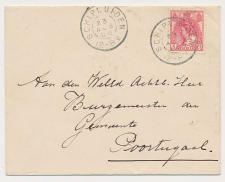 SCHIPLUIDEN
23
Aan den WelEd. Achtb. Heer
Burgemeester der
Gemeente
Poortugaal